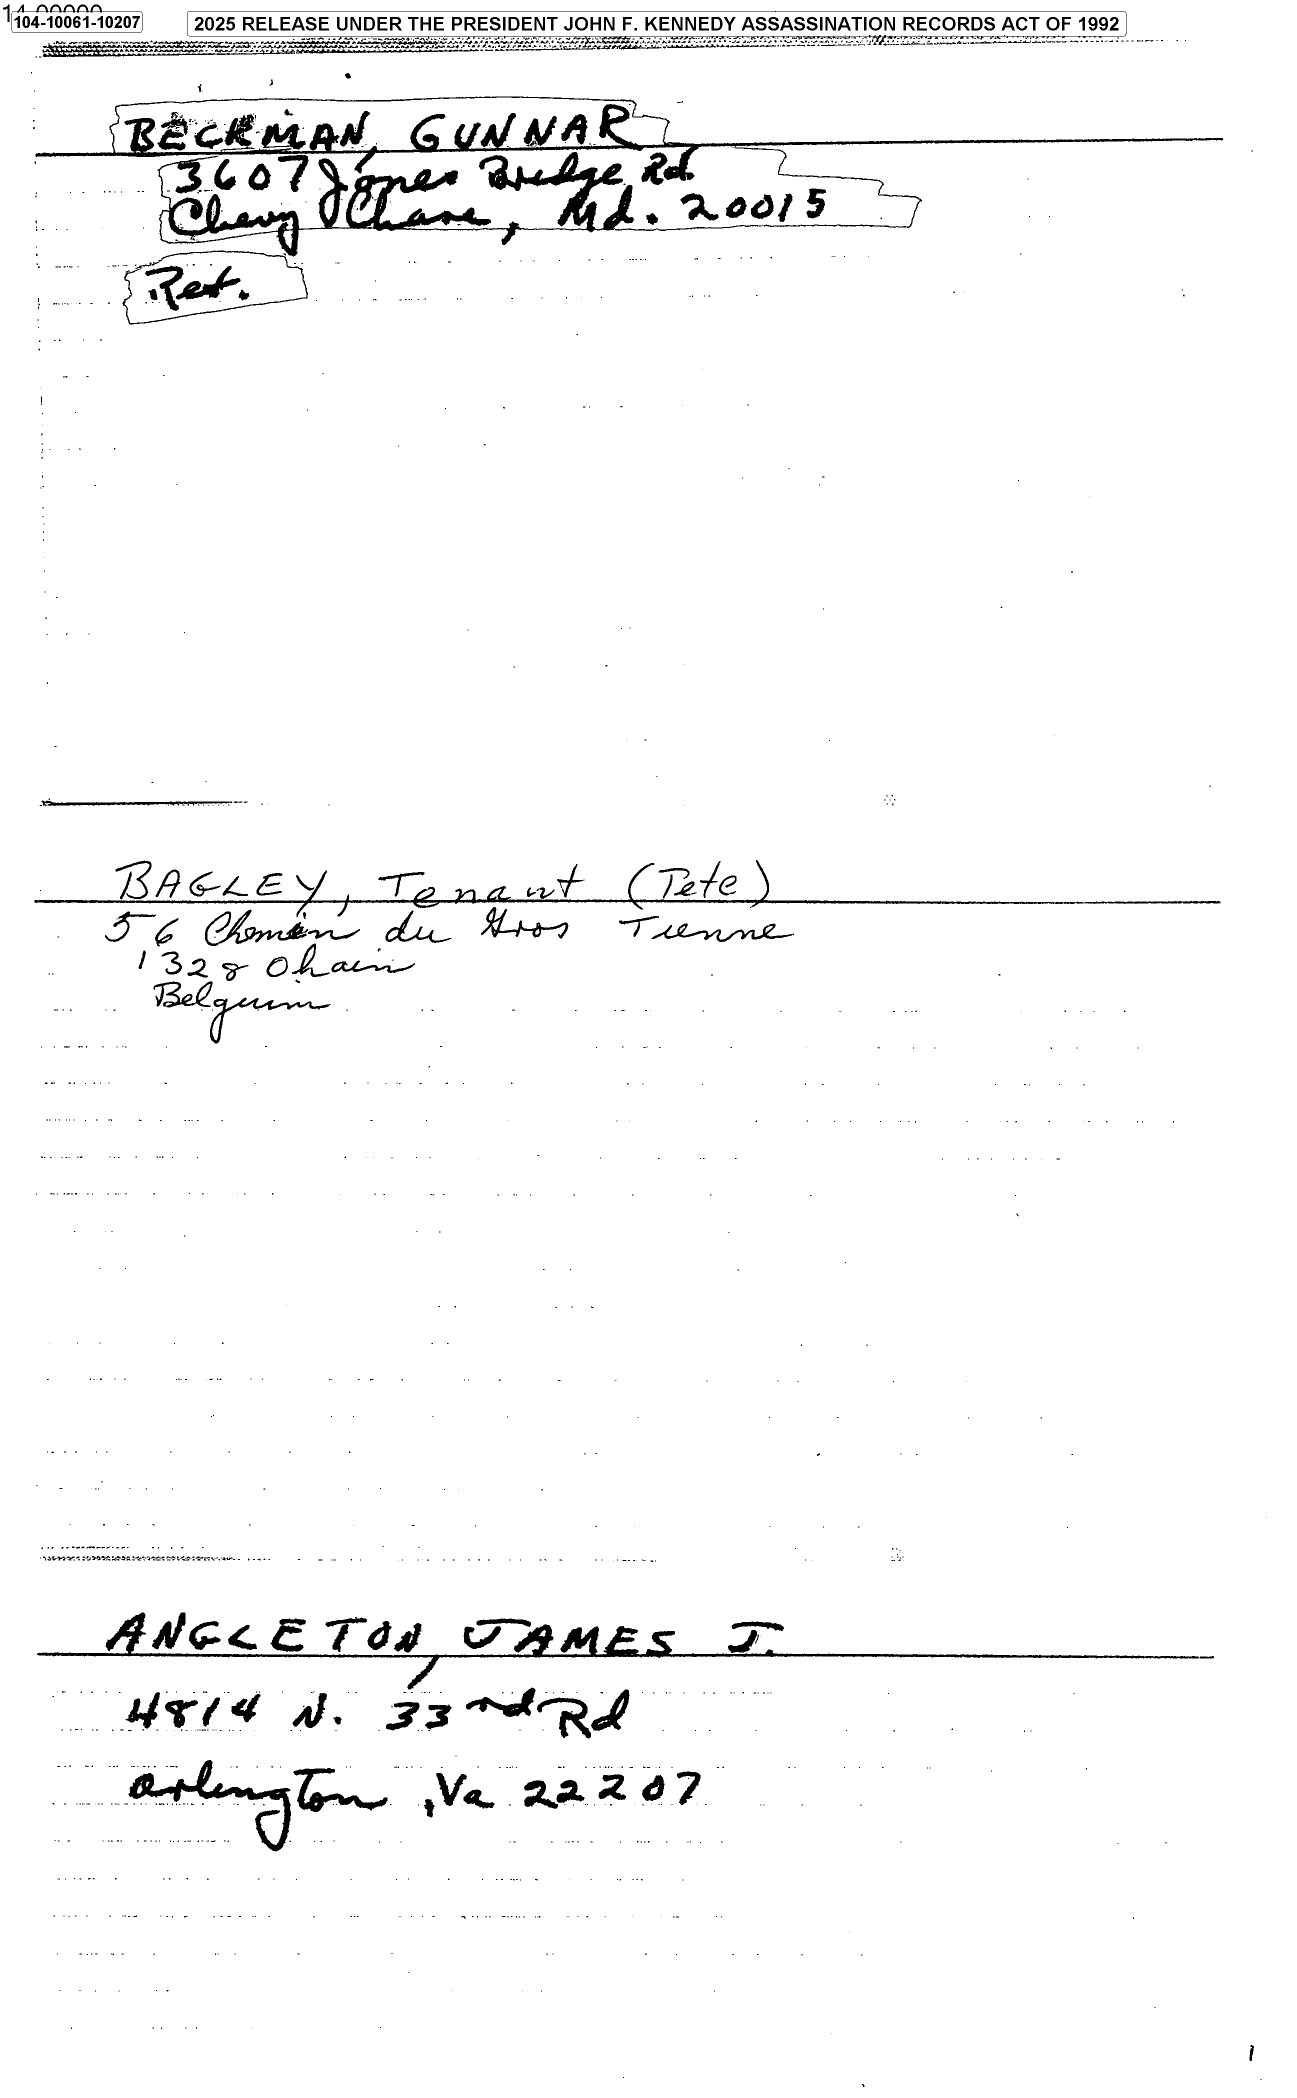 14-00000
104-10061-10207
2025 RELEASE UNDER THE PRESIDENT JOHN F. KENNEDY ASSASSINATION RECORDS ACT OF 1992
BECKMAN, GUNNAR
3607 Jones Bridge Rd.
Chevy Chase, Md. 20015
Ret.
BAGLEY, Tenant (Pete)
56 Chemin du Gros Tienne
1328 Ohain
Belguim
ANGLETON, JAMES J.
4814 N. 33rd Rd
Arlington, Va 22207
1